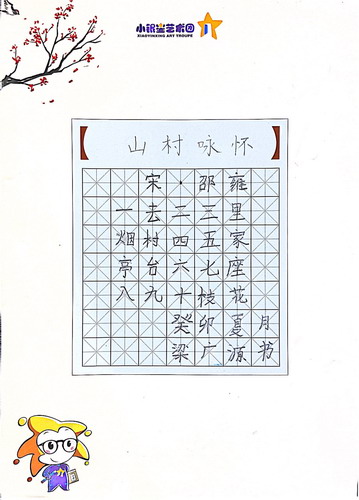 小银星艺术团
XIAOYINXING ART TROUPE
山村咏怀
宋·邵雍
一去二三里
烟村四五家
亭台六七座
八九十枝花
癸卯夏月
梁广源书